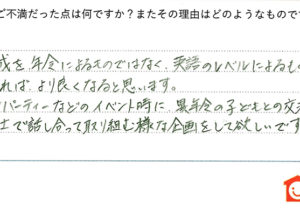 ご不満だった点は何ですか？またその理由はどのようなもので
成を年令によるものではなく、英語のレベルによるも
れば、より良くなると思います。
パーティーなどのイベント時に、異年令の子どもとの交
士で話し合って取り組む様な企画をして欲しいです